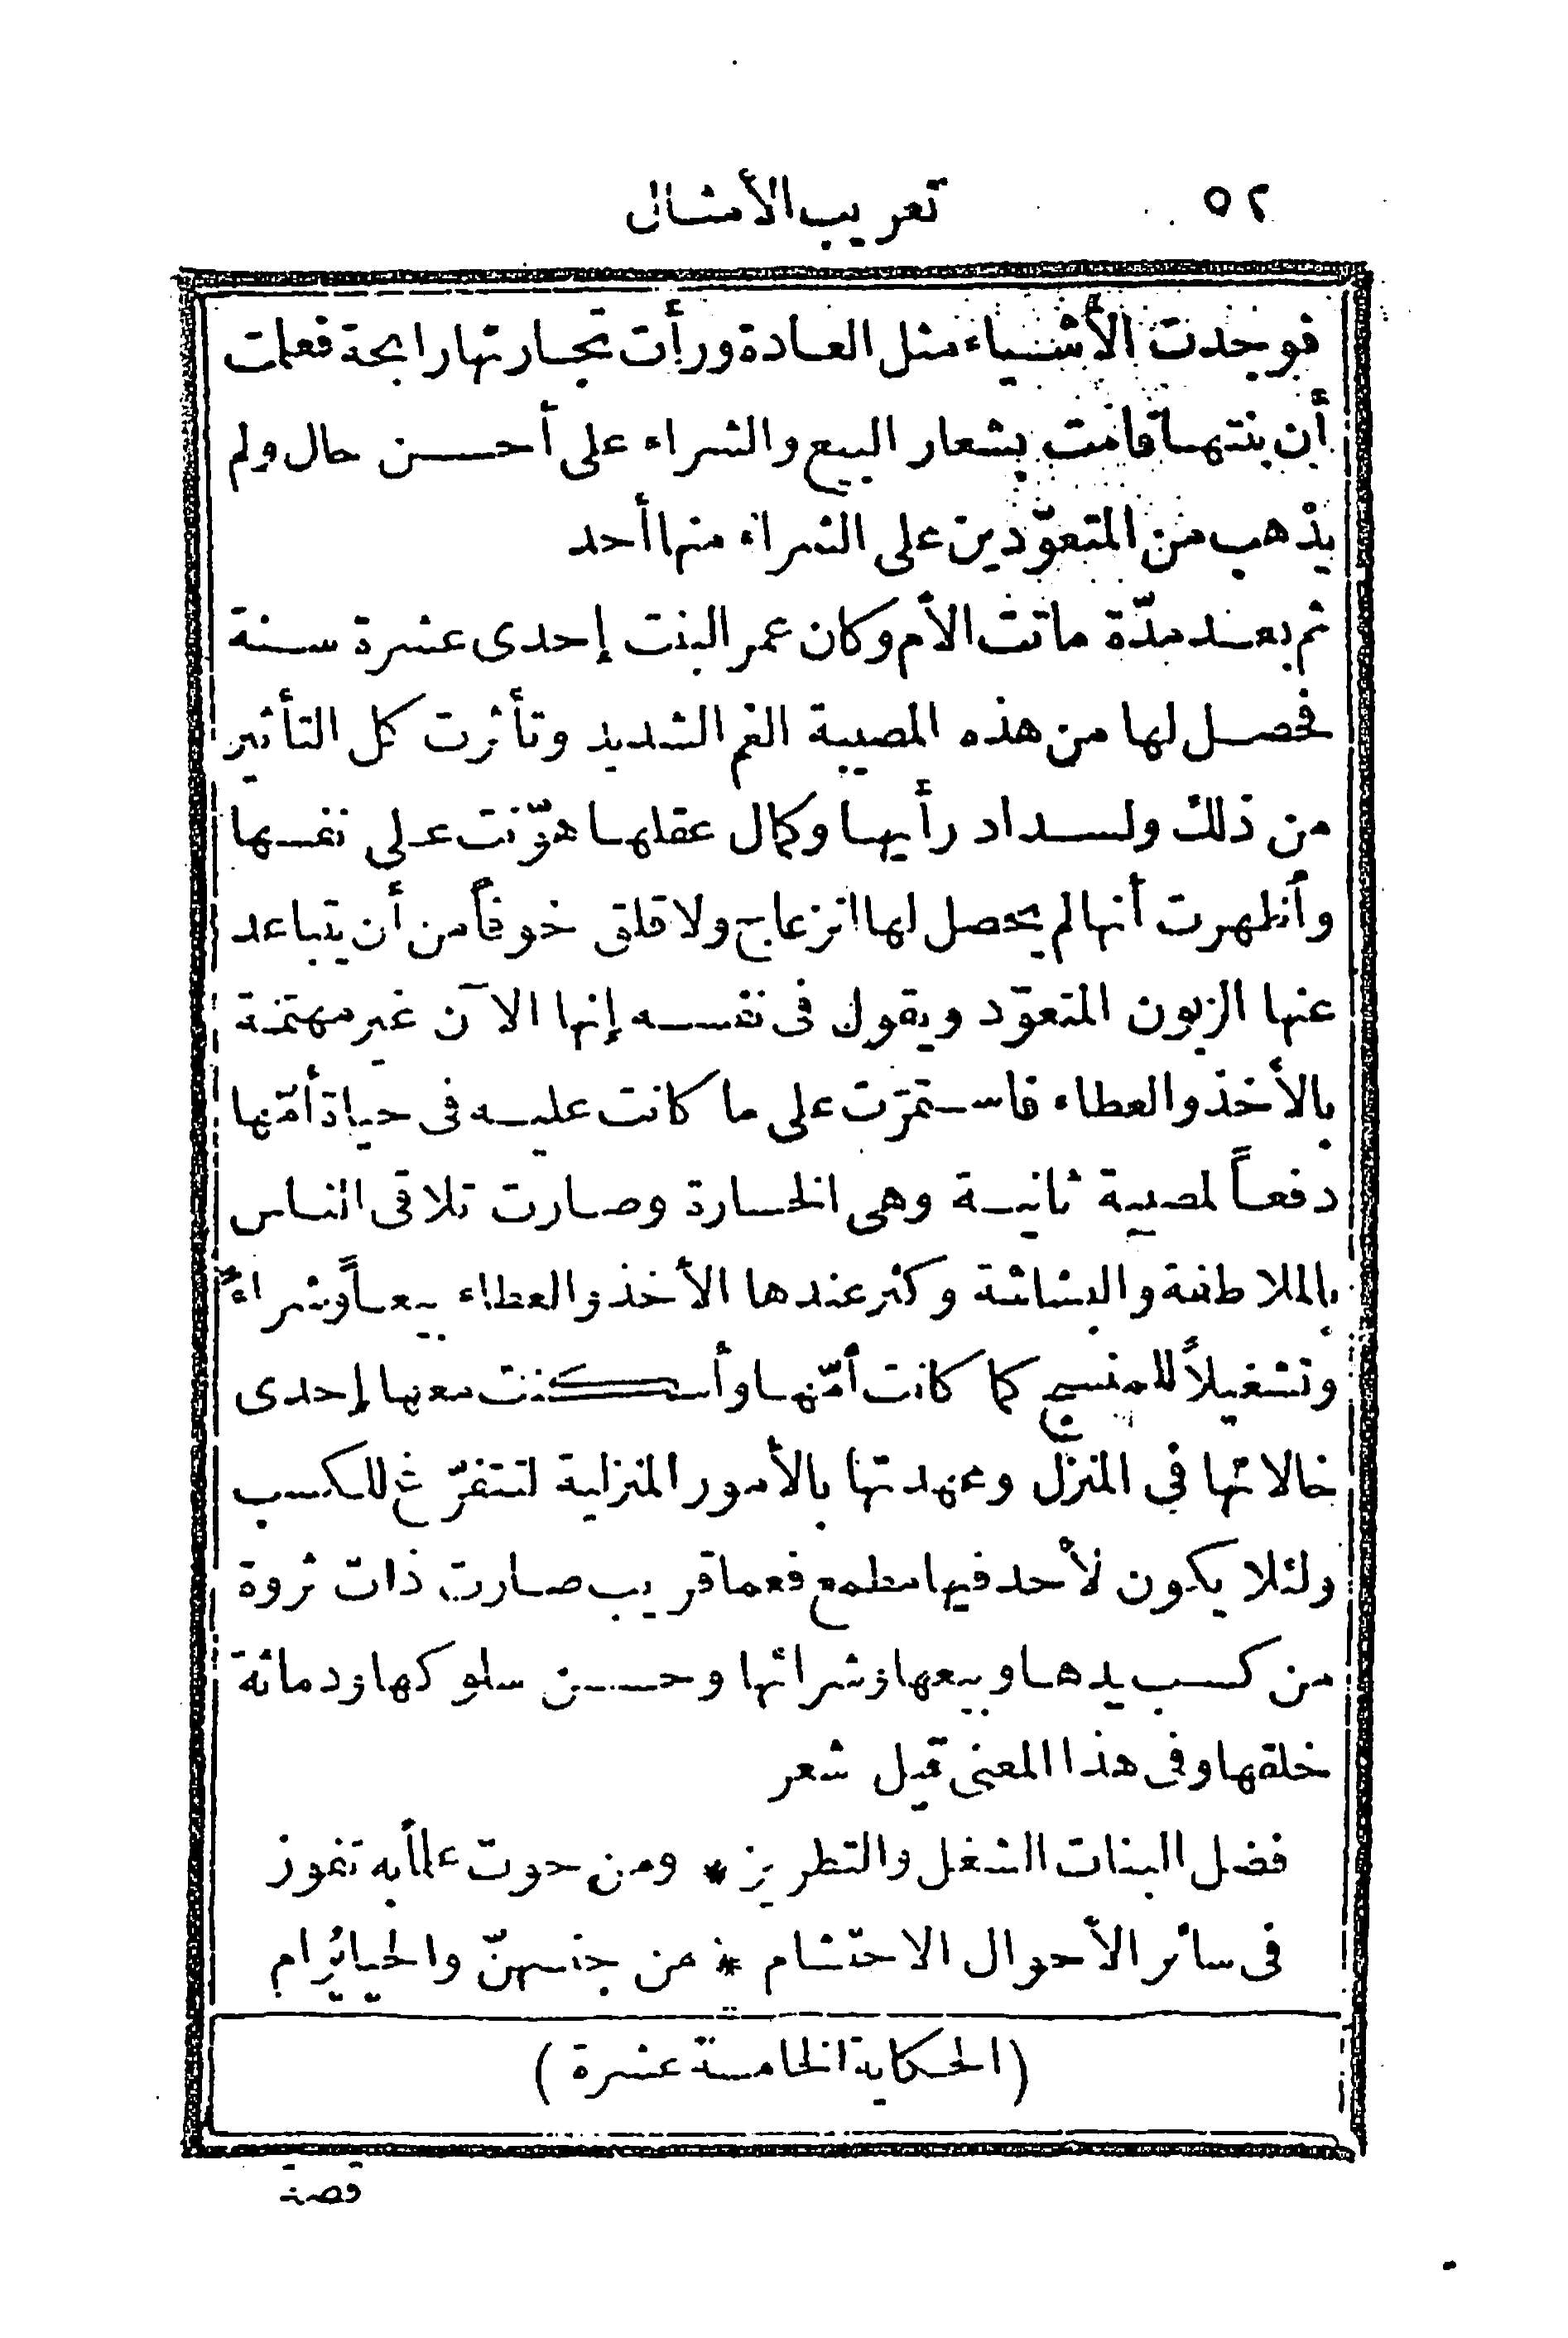 ٥٢
تعريب الأمثال
فوجدت الأشياء مثل العادة ورأت تجارتها رابحة فعلمت
أن بنتها قامت بشعار البيع والشراء على أحسن حال ولم
يذهب من المتعوّدين على الشراء منها أحد
ثم بعد مدّة ماتت الأم وكان عمر البنت إحدى عشرة سنة
فحصل لها من هذه المصيبة الغم الشديد وتأثرت كل التأثير
من ذلك ولسداد رأيها وكمال عقلها هوّنت على نفسها
وأظهرت أنها لم يحصل لها انزعاج ولا قلق خوفاً من أن يتباعد
عنها الزبون المتعوّد ويقول فى نفسه إنها الآن غير مهتمّة
بالأخذ والعطاء فاستمرّت على ما كانت عليه فى حياة أمّها
دفعاً لمصيبة ثانية وهى الخسارة وصارت تلاقى الناس
بالملاطفة والبشاشة وكثر عندها الأخذ والعطاء بيعاً وشراءً
وتشغيلاً للمنسج كما كانت أمّها وأسكنت معها إحدى
خالاتها فى المنزل وعهدتها بالأمور المنزلية لتتفرّغ للكسب
ولئلا يكون لأحد فيها مطمع فعما قريب صارت ذات ثروة
من كسب يدها وبيعها وشرائها وحسن سلوكها ودماثة
خلقها وفى هذا المعنى قيل شعر
فضل البنات الشغل والتطريز * ومن حوت علماً به تفوز
فى سائر الأحوال الاحتشام * من جنسهنّ والحيا يُرام
(الحكاية الخامسة عشرة)
قصة